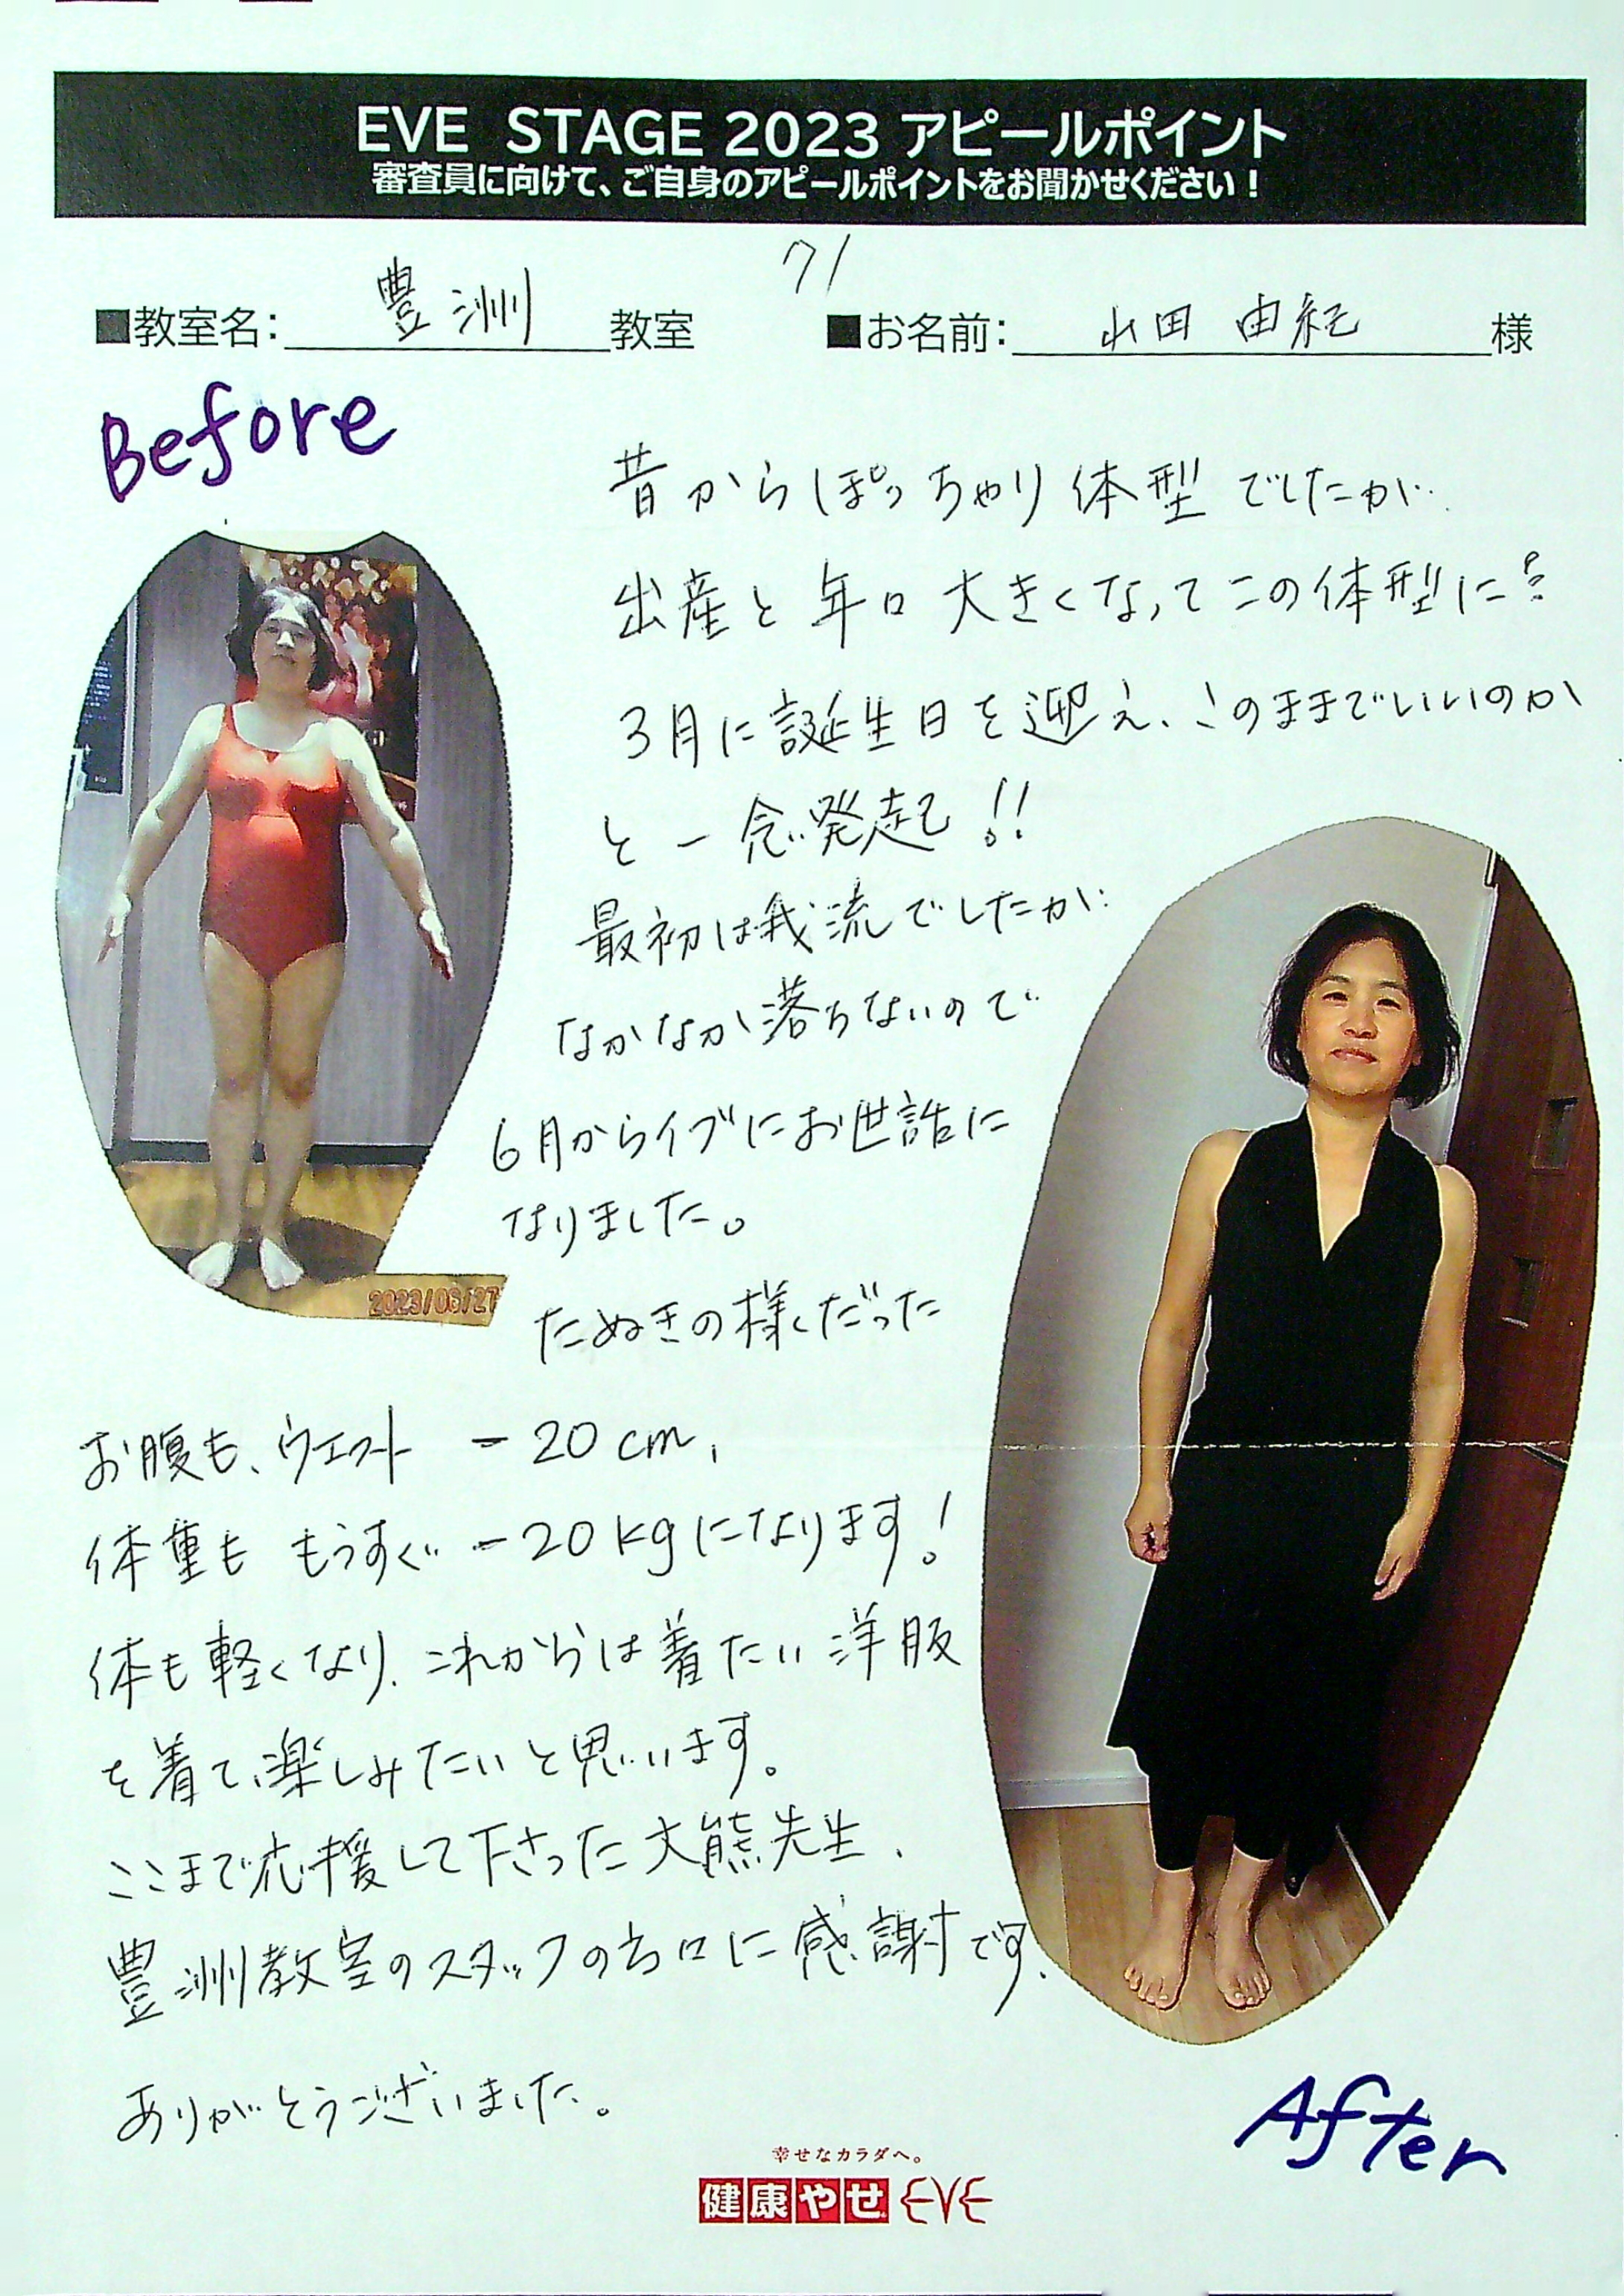 EVE STAGE 2023 アピールポイント
審査員に向けて、ご自身のアピールポイントをお聞かせください！
71
■教室名： 豊洲 教室 ■お名前： 山田 由紀 様
Before
昔からぽっちゃり体型でしたが
出産と年々大きくなってこの体型に
3月に誕生日を迎え、このままでいいのか
と一念発起!!
最初は我流でしたが
なかなか落ちないので
6月からイブにお世話に
なりました。
2023/06/27
たぬきの様だった
お腹も、ウエスト -20cm、
体重ももうすぐ -20kgになります！
体も軽くなり、これからは着たい洋服
を着て、楽しみたいと思います。
ここまで応援して下さった大熊先生、
豊洲教室のスタッフの方々に感謝です。
ありがとうございました。
After
幸せなカラダへ。
健康やせ EVE